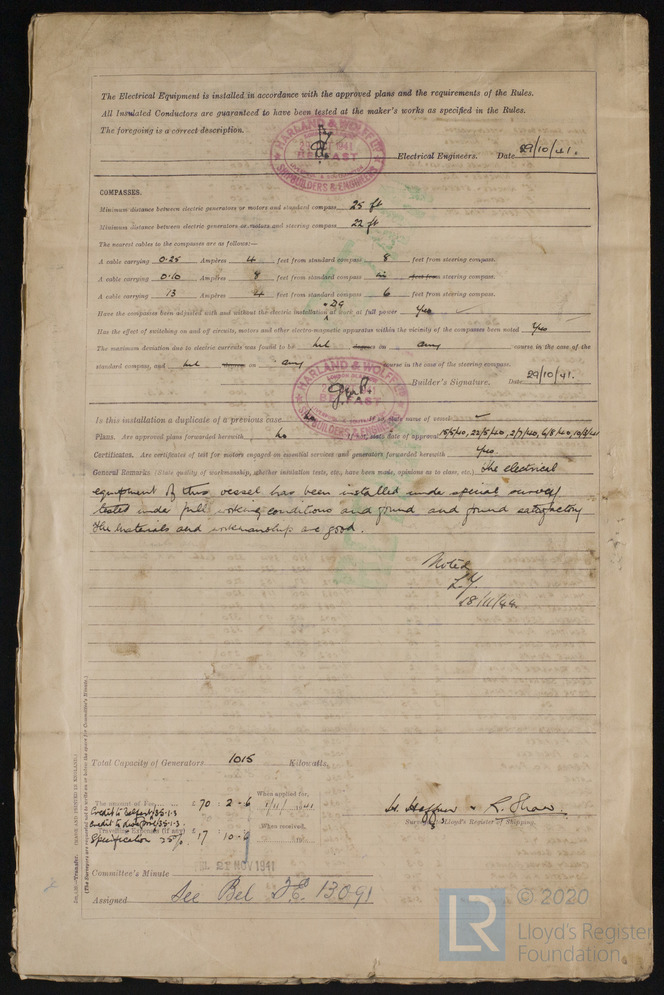 The Electrical Equipment is installed in accordance with the approved plans and the requirements of the Rules.
All Insulated Conductors are guaranteed to have been tested at the maker's works as specified in the Rules.
The foregoing is a correct description.
HARLAND & WOLFF LTD
1941
BELFAST
SHIPBUILDERS & ENGINEERS
Electrical Engineers. Date 29/10/41.
COMPASSES.
Minimum distance between electric generators or motors and standard compass 25 ft
Minimum distance between electric generators or motors and steering compass 22 ft
The nearest cables to the compasses are as follows:—
A cable carrying 0.25 Ampères 4 feet from standard compass 8 feet from steering compass.
A cable carrying 0.10 Ampères feet from standard compass feet from steering compass.
A cable carrying 13 Ampères 4 feet from standard compass 6 feet from steering compass.
DG
Have the compasses been adjusted with and without the electric installation at work at full power Yes
Has the effect of switching on and off circuits, motors and other electro-magnetic apparatus within the vicinity of the compasses been noted Yes
The maximum deviation due to electric currents was found to be Nil degrees on any course in the case of the
standard compass, and Nil degrees on any course in the case of the steering compass.
HARLAND & WOLFF LTD
BELFAST
SHIPBUILDERS & ENGINEERS
Builder's Signature. Date 29/10/41.
Is this installation a duplicate of a previous case No If so, state name of vessel
Plans. Are approved plans forwarded herewith No If not, state date of approval 22/5/40, 2/7/40, 6/8/40,
Certificates. Are certificates of test for motors engaged on essential services and generators forwarded herewith Yes.
General Remarks (State quality of workmanship, whether installation tests, etc., have been made, opinions as to class, etc.) The electrical
equipment of this vessel has been installed under special survey
tested under full working conditions and found and found satisfactory
the materials and workmanship are good.
Noted
18/11/44
Total Capacity of Generators 1015 Kilowatts.
The amount of Fee £ 70 : 2 : 6 When applied for, 1/11/1941
Credit to Belfast
Travelling Expenses (if any) £ 17 10 When received,
Specification 25%
Surveyors to Lloyd's Register of Shipping.
21 NOV 1941
Committee's Minute
Assigned See Bel F.E. 13091
© 2020
LR
Lloyd's Register
Foundation